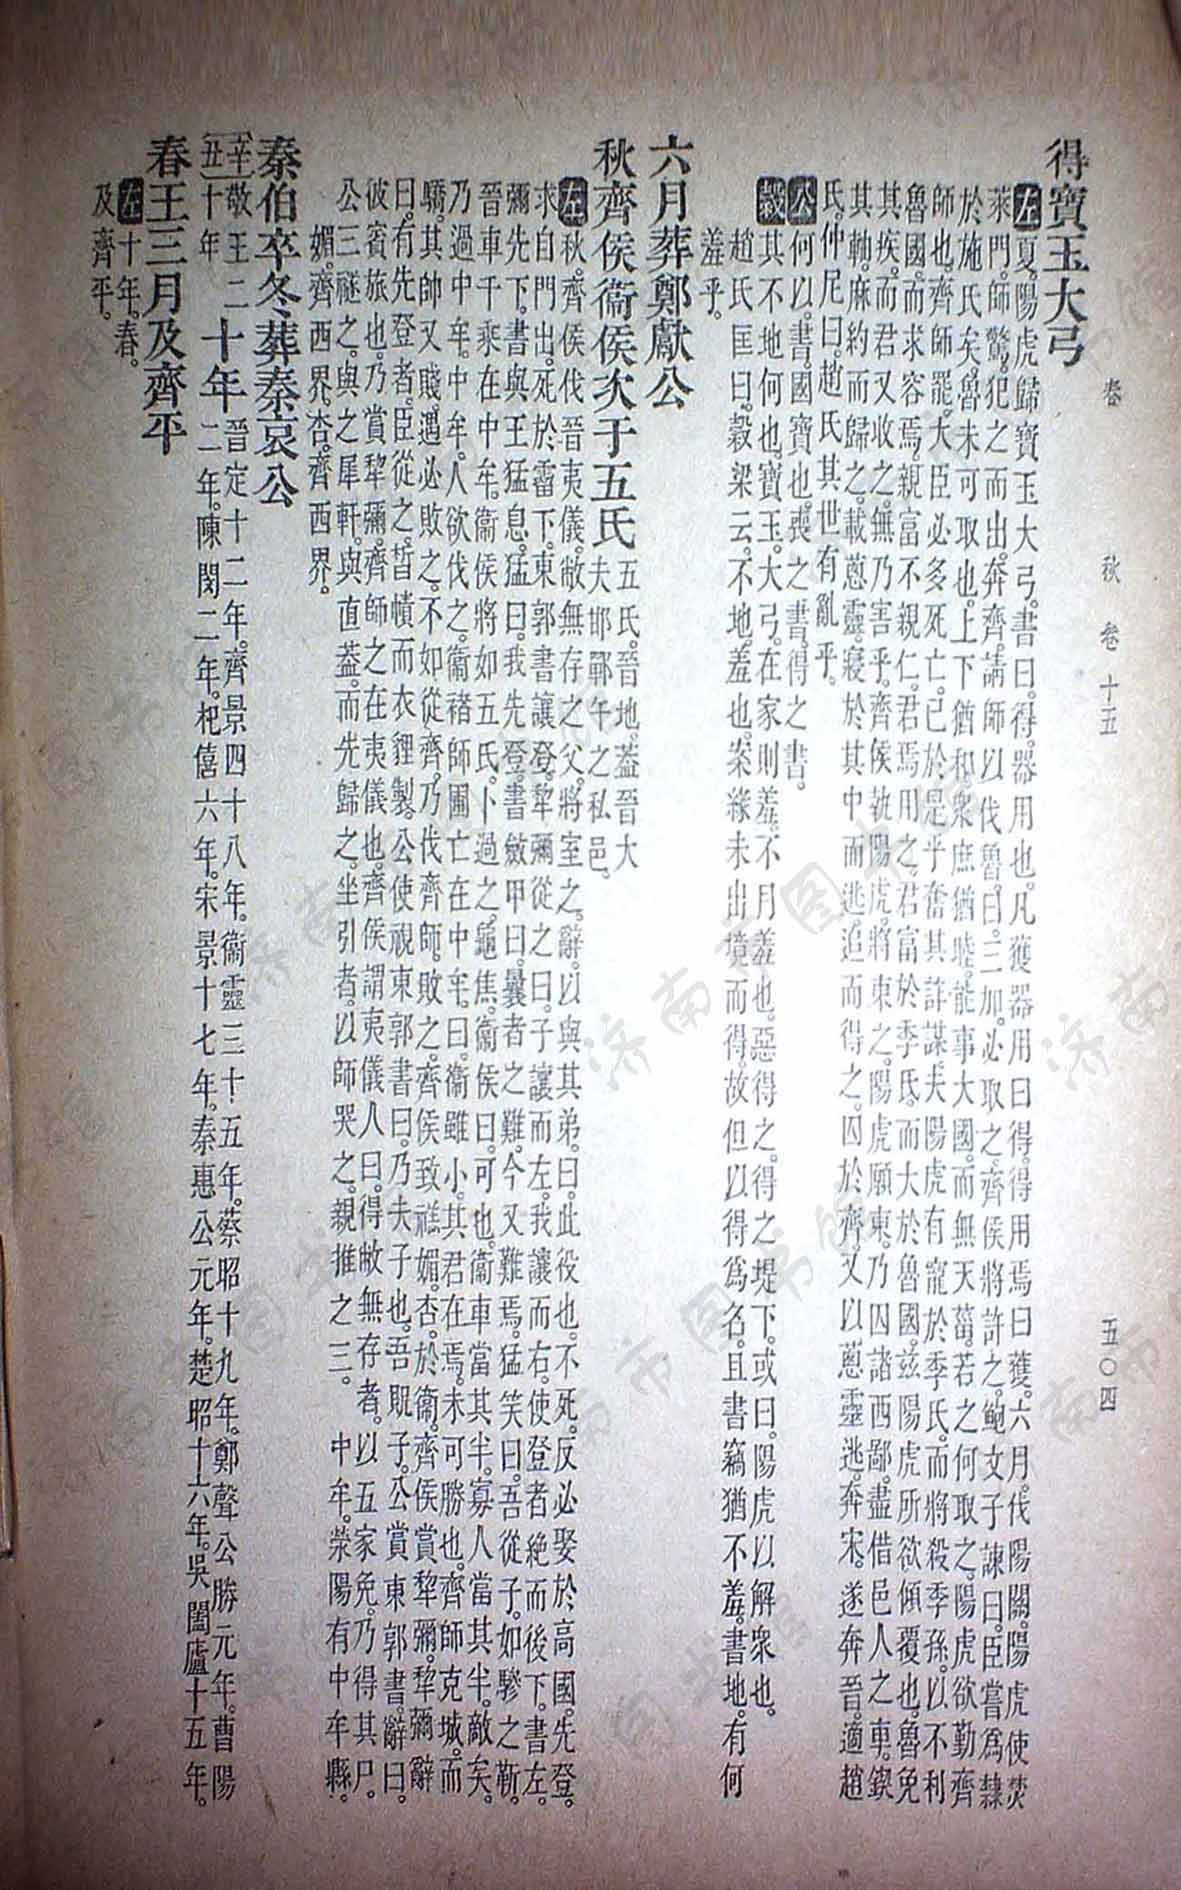 春　秋　卷十五　五〇四
得寶玉大弓
左夏。陽虎歸寶玉大弓。書曰得。器用也。凡獲器用曰得。得用焉曰獲。六月。伐陽關。陽虎使焚
萊門。師驚。犯之而出。奔齊。請師以伐魯。曰。三加。必取之。齊侯將許之。鮑文子諫曰。臣嘗爲隸
於施氏矣。魯未可取也。上下猶和。衆庶猶睦。能事大國。而無天菑。若之何取之。陽虎欲勤齊
師也。齊師罷。大臣必多死亡。己於是乎奮其詐謀。夫陽虎有寵於季氏。而將殺季孫。以不利
魯國。而求容焉。親富不親仁。君焉用之。君富於季氏。而大於魯國。茲陽虎所欲傾覆也。魯免
其疾。而君又收之。無乃害乎。齊侯執陽虎。將東之。陽虎願東。乃囚諸西鄙。盡借邑人之車。鍥
其軸。麻約而歸之。載蔥靈。寢於其中而逃。追而得之。囚於齊。又以蔥靈逃。奔宋。遂奔晉。適趙
氏。仲尼曰。趙氏其世有亂乎。
公何以書。國寶也。喪之書。得之書。
穀其不地何也。寶玉。大弓。在家則羞。不月羞也。惡得之。得之堤下。或曰。陽虎以解衆也。
趙氏匡曰。穀梁云。不地。羞也。案緣未出境而得。故但以得爲名。且書竊猶不羞。書地。有何
羞乎。
六月葬鄭獻公
秋齊侯衞侯次于五氏五氏。晉地。蓋晉大
夫邯鄲午之私邑。
左秋。齊侯伐晉夷儀。敝無存之父。將室之。辭。以與其弟。曰。此役也。不死。反必娶於高國。先登。
求自門出。死於霤下。東郭書讓登。犂彌從之。曰。子讓而左。我讓而右。使登者絶而後下。書左。
彌先下。書與王猛息。猛曰。我先登。書斂甲曰。曩者之難。今又難焉。猛笑曰。吾從子。如驂之靳。
晉車千乘在中牟。衞侯將如五氏。卜過之。龜焦。衞侯曰。可也。衞車當其半。寡人當其半。敵矣。
乃過中牟。中牟人欲伐之。衞褚師圃亡在中牟。曰。衞雖小。其君在焉。未可勝也。齊師克城。而
驕。其帥又賤。遇必敗之。不如從齊。乃伐齊師。敗之。齊侯致禚媚。杏。於衞。齊侯賞犂彌。犂彌辭
曰。有先登者。臣從之。晳幘而衣貍製。公使視東郭書曰。乃夫子也。吾貺子。公賞東郭書。辭曰。
彼賓旅也。乃賞犂彌。齊師之在夷儀也。齊侯謂夷儀人曰。得敝無存者。以五家免。乃得其尸。
公三襚之。與之犀軒。與直蓋。而先歸之。坐引者。以師哭之。親推之三。　中牟。滎陽有中牟縣。
媚。齊西界。杏。齊西界。
秦伯卒冬葬秦哀公
〔辛丑〕敬王二十年十年晉定十二年。齊景四十八年。衞靈三十五年。蔡昭十九年。鄭聲公勝元年。曹陽
二年。陳閔二年。杞僖六年。宋景十七年。秦惠公元年。楚昭十六年。吳闔廬十五年。
春王三月及齊平
左十年。春。
及齊平。